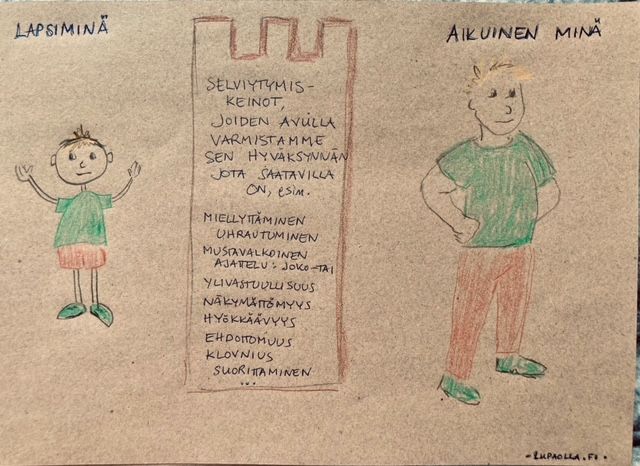 LAPSIMINÄ
AIKUINEN MINÄ
SELVIYTYMIS-
KEINOT,
JOIDEN AVULLA
VARMISTAMME
SEN HYVÄKSYNNÄN
JOTA SAATAVILLA
ON, esim.
MIELLYTTÄMINEN
UHRAUTUMINEN
MUSTAVALKOINEN
AJATTELU: JOKO-TAI
YLIVASTUULLISUUS
NÄKYMÄTTÖMYYS
HYÖKKÄÄVYYS
EHDOTTOMUUS
KLOVNIUS
SUORITTAMINEN
...
-LUPAOLLA.FI-